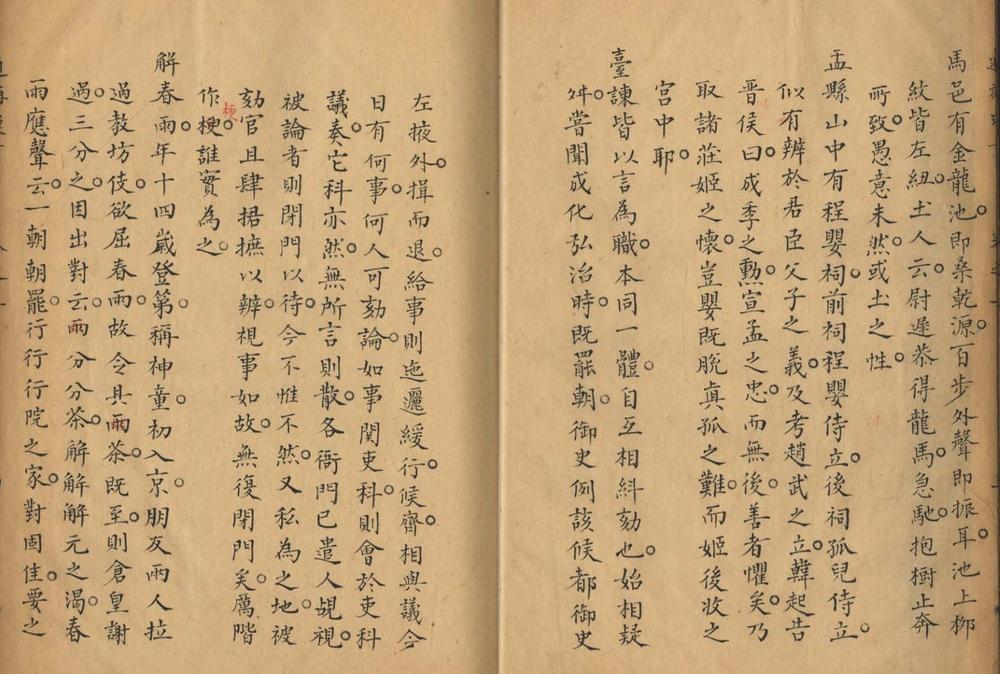 馬邑有金龍池即桑乾源百步外聲即振耳池上柳
紋皆左紐土人云尉遲恭得龍馬急馳抱樹止奔
所致愚意未然或土之性
盂縣山中有程嬰祠前祠程嬰侍立後祠孤兒侍立
似有辨於君臣父子之義及考趙武之立韓起告
晉侯曰成季之勲宣孟之忠而無後善者懼矣乃
取諸莊姬之懷豈嬰既脫眞孤之難而姬後收之
宮中耶
臺諫皆以言為職本同一體自互相糾劾也始相疑
舛嘗聞成化弘治時既罷朝御史例該候都御史
左掖外揖而退給事則迤邐緩行候齊相與議今
日有何事何人可劾論如事関吏科則會於吏科
議奏它科亦然無所言則散各衙門已遣人覘視
被論者則閉門以待今不惟不然又私為之地被
劾官且肆捃摭以辨視事如故無復閉門矣厲階
作梗誰實為之
梗
解春雨年十四歲登第稱神童初入京朋友兩人拉
過教坊伎欲屈春雨故令具兩茶既至則倉皇謝
過三分之因出對云兩分分茶解解解元之渴春
雨應聲云一朝朝罷行行行院之家對固佳要之